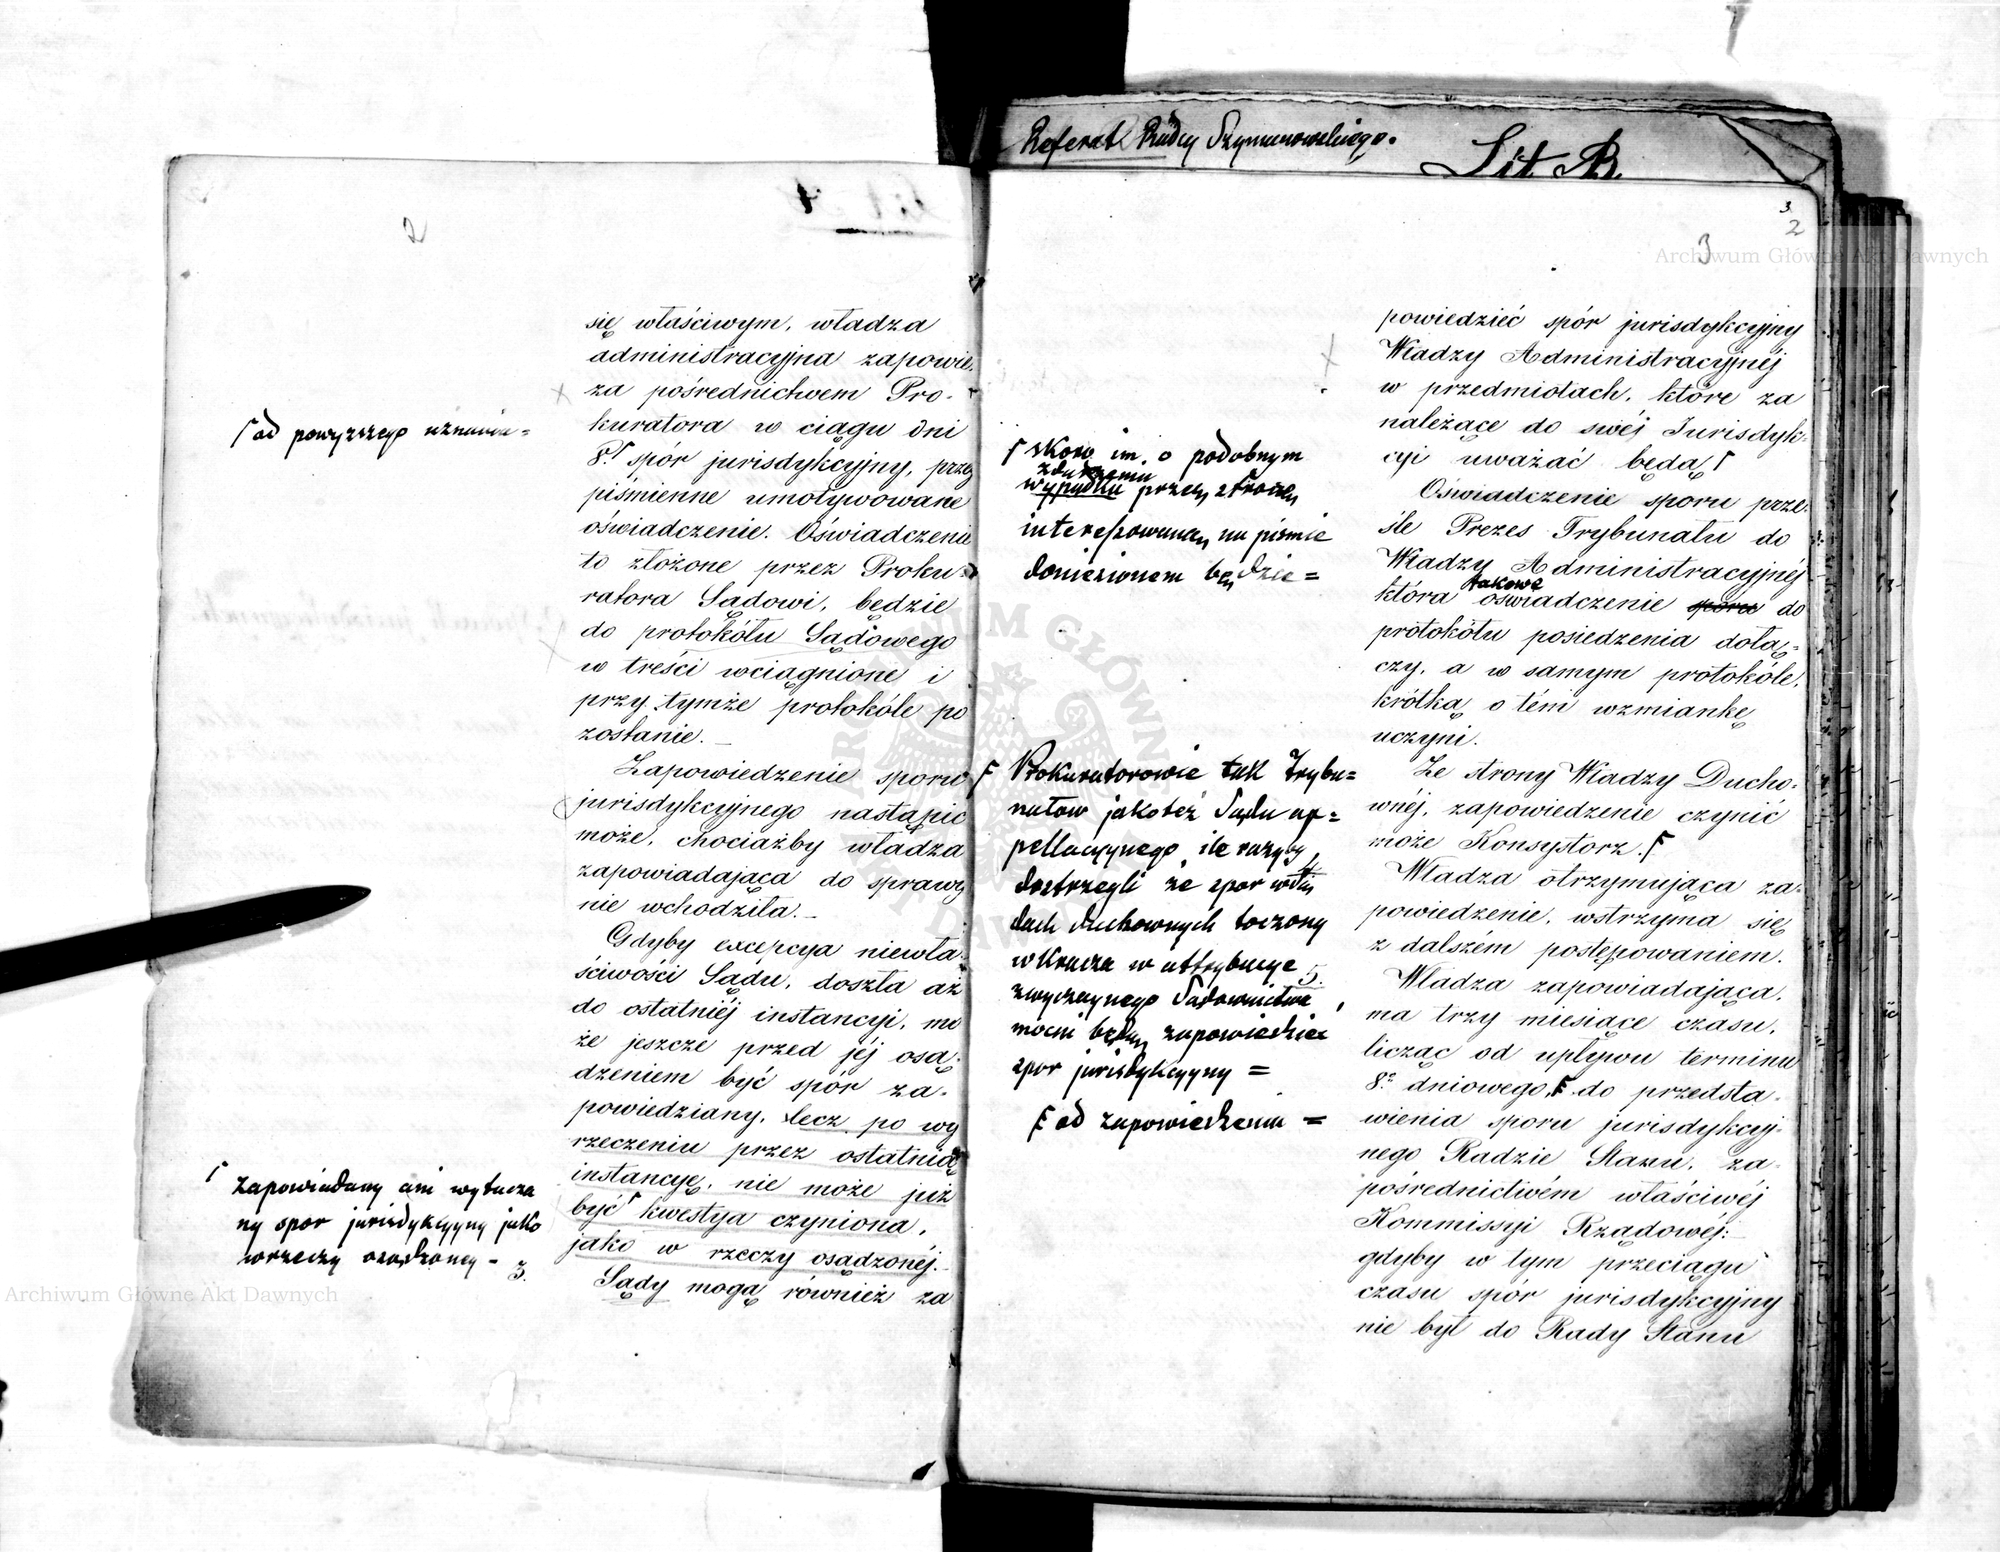 2
się właściwym, władza
administracyjna zapowie,
za pośrednictwem Pro-
kuratora w ciągu dni
8. spór jurisdykcyjny, przez
piśmienne umotywowane
oświadczenie. Oświadczenie
to złożone przez Proku-
ratora Sądowi, będzie
do protokółu Sądowego
w treści wciągnione i
przy tymże protokóle po
zostanie.
Zapowiedzenie sporu
jurisdykcyjnego nastąpić
może, chociażby władza
zapowiadająca do sprawy
nie wchodziła.
Gdyby excepcya niewła-
ściwości Sądu, doszła aż
do ostatniéj instancyi, mo
że jeszcze przed jéj osą-
dzeniem być spór za-
powiedziany, lecz po wy
rzeczeniu przez ostatnią
instancyę, nie może już
być kwestya czyniona,
jako w rzeczy osądzonéj.
Sądy mogą również za
od powyższego uznania=
zapowiadany ani wytacza
ny spor jurisdykcyyny jako
w rzeczy osądzoney -
3.
Referat Radcy Szymanowskiego.
Lit B.
3
2
3
skoro im o podobnym
zdarzeniu
wypadku przez stronę
interessowaną na piśmie
doniesionem będzie =
Prokuratorowie tak Trybu=
nałów jakoteż Sądu ap=
pellacyynego, ile razy by
dostrzegli że spor w Są
dach duchownych toczony
wkracza w attrybucye
5.
zwyczaynego Sądownictwa,
mocni będą zapowiedzieć
spor jurisdykcyyny =
od zapowiedzenia =
powiedzieć spór jurisdykcyjny
Władzy Administracyjnéj
w przedmiotach, które za
należące do swéj Jurisdyk-
cyi uważać będą
Oświadczenie sporu prze-
śle Prezes Trybunału do
Władzy Administracyjnéj
takowe
która oświadczenie sporu do
protokółu posiedzenia dołą-
czy, a w samym protokóle,
krótką o tém wzmiankę
uczyni.
Ze strony Władzy Ducho-
wnéj, zapowiedzenie czynić
może Konsystorz.
Władza otrzymująca za-
powiedzenie, wstrzyma się
z dalszém postępowaniem.
Władza zapowiadająca,
ma trzy miesiące czasu,
licząc od upływu terminu
8. dniowego, do przedsta-
wienia sporu jurisdykcyj-
nego Radzie Stanu, za-
pośrednictwém właściwéj
Kommissyi Rządowéj:
gdyby w tym przeciągu
czasu spór jurisdykcyjny
nie był do Rady Stanu
Archiwum Główne Akt Dawnych
Archiwum Główne Akt Dawnych